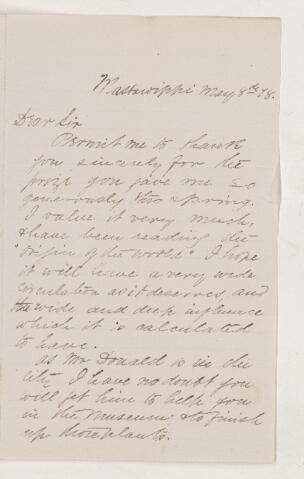 Massawippi May 8th 78.
Dear Sir
Permit me to thank
you sincerely for the
prize you gave me so
generously this spring.
I value it very much,
& have been reading the
"Origin of the World" I hope
it will have a very wide
circulation as it deserves, and
the wide and deep influence
which it is calculated
to have.
As Mr Donald is in the
city I have no doubt you
will get him to help you
in the Museum & to finish
up those plants.